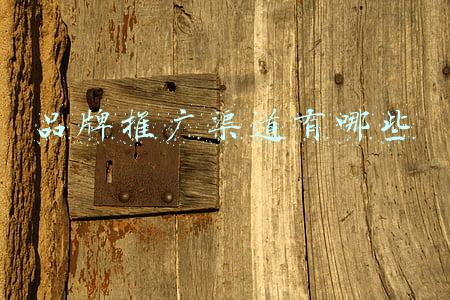 品牌推广渠道有哪些